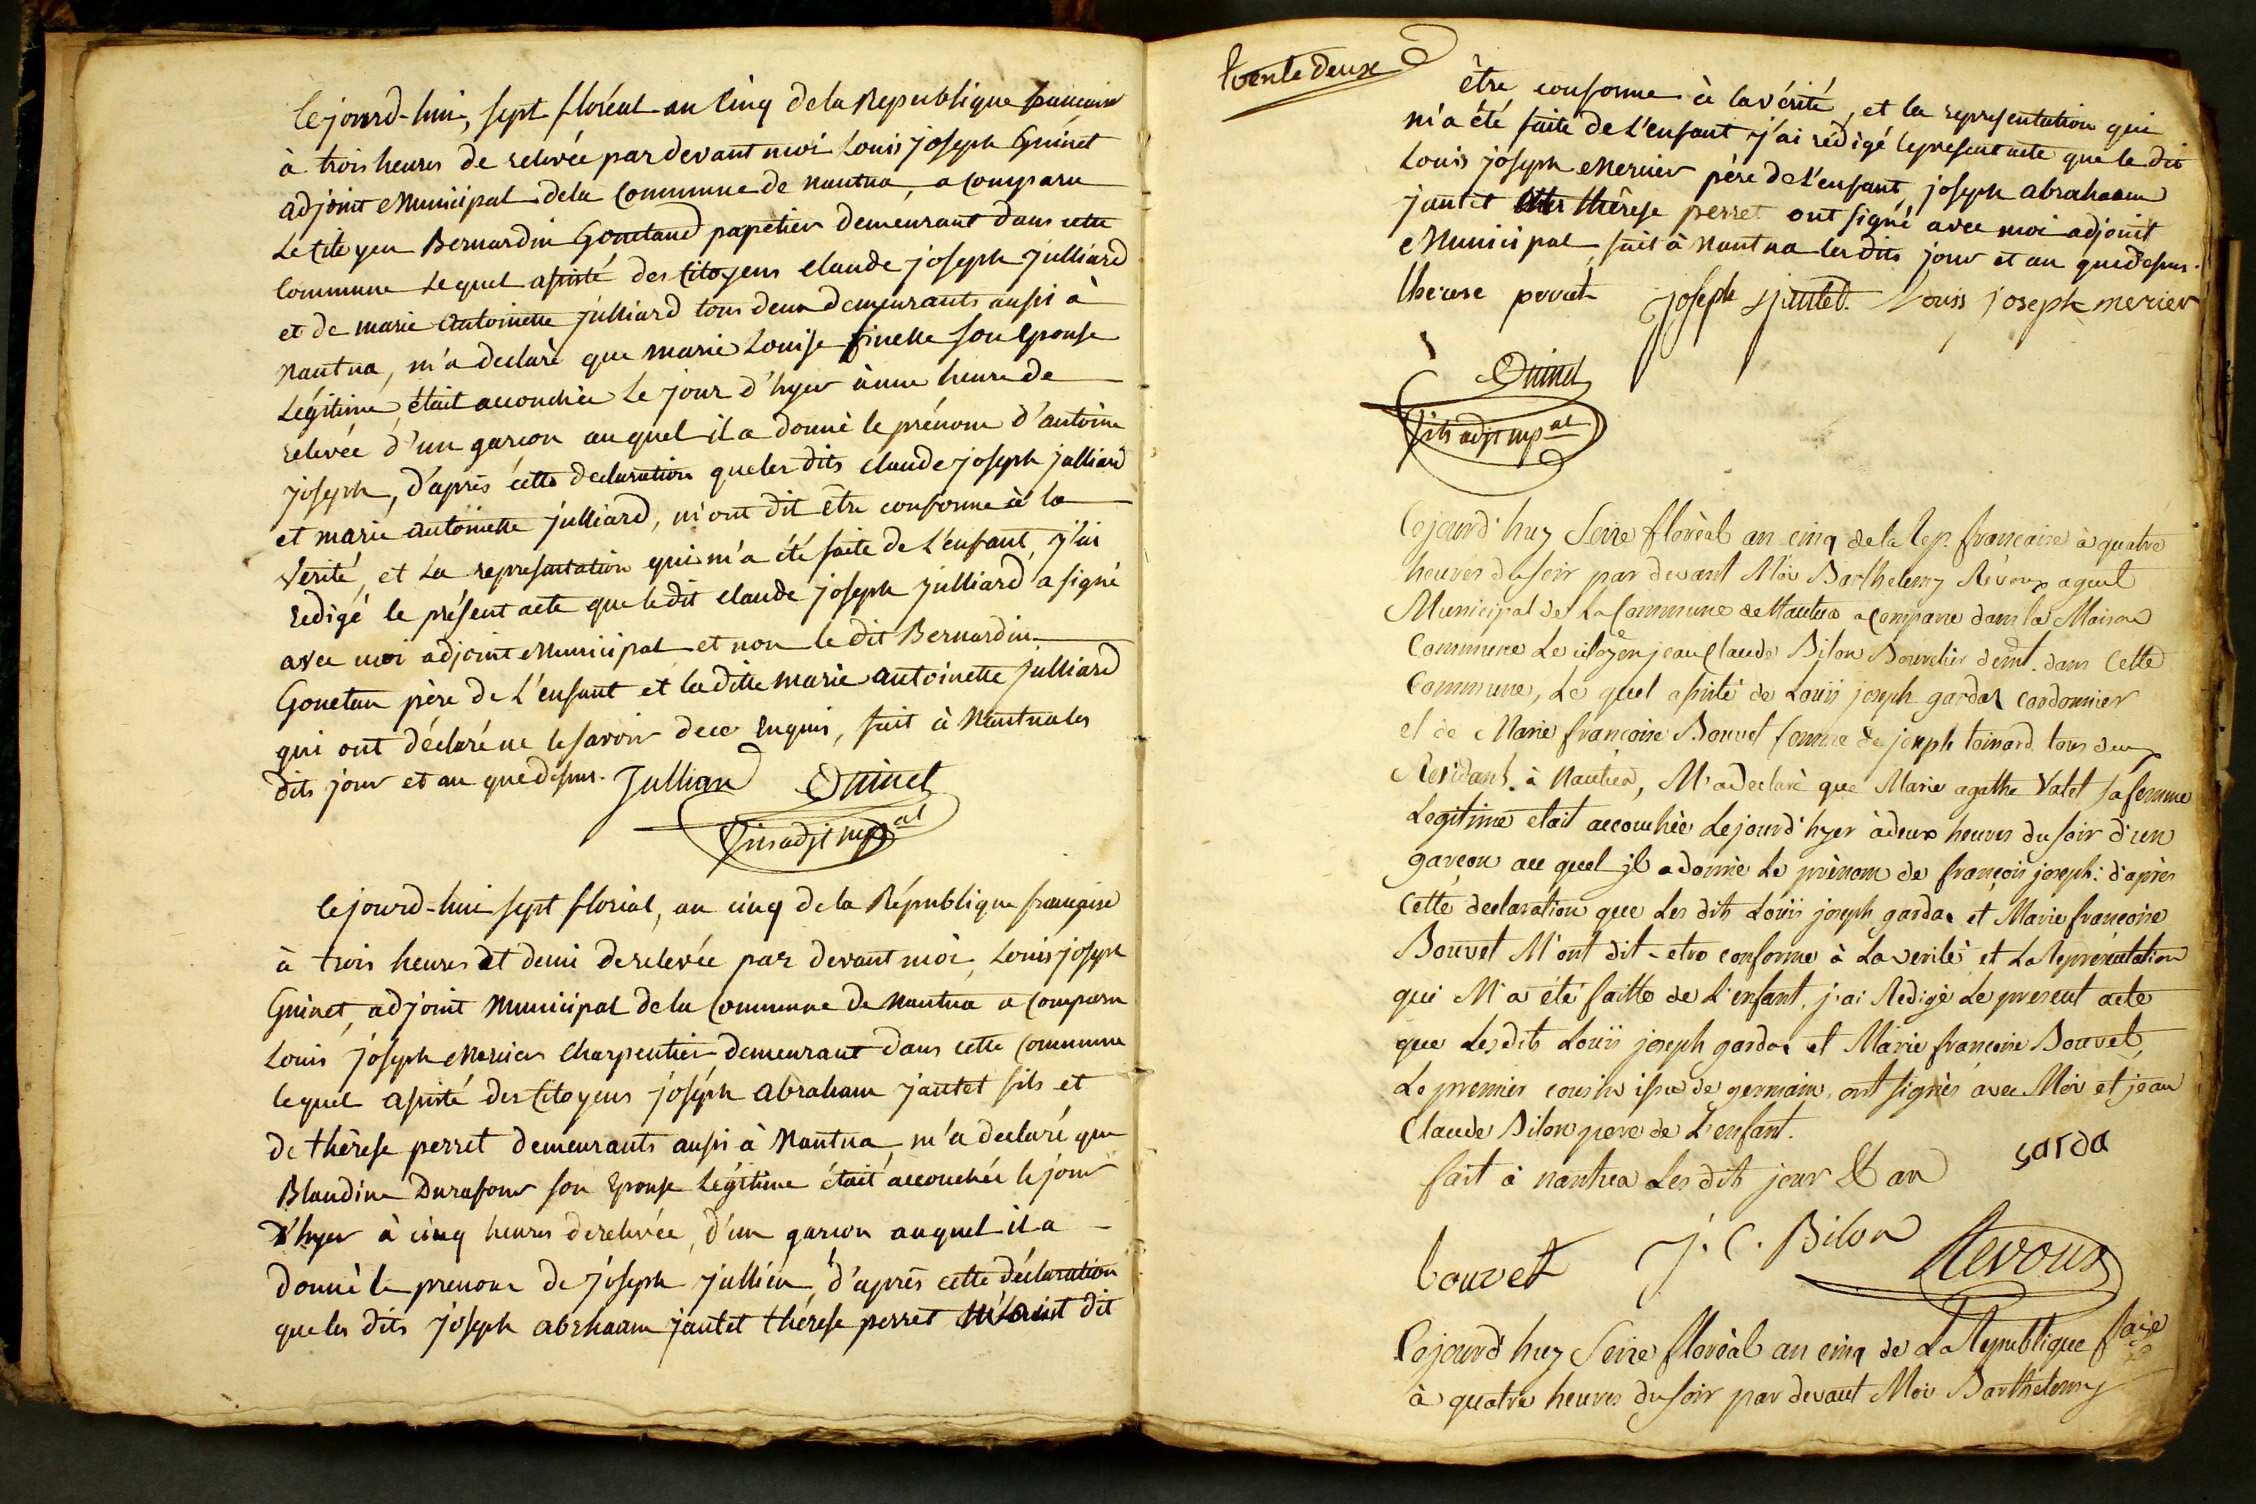 Cejourd-hui, sept floréal an Cinq de la Republique francaise
à trois heures de relevée par devant moi Louis joseph Guinet
adjoint Municipal de la Commune de nantua, a comparu
Le Citoyen Bernardin Gouetand papetier demeurant dans cette
Commune lequel assisté des Citoyens claude joseph julliard
et de marie antoinette julliard tous deux demeurants aussi à
nantua, m'a declaré que marie Louise finelle son epouse
Légitime, était accouchée le jour d'hyer à une heure de
relevée d'un garcon auquel il a donné le prénom d'antoine
joseph, d'après cette declaration que les dits claude joseph julliard
et marie antoinette julliard, m'ont dit être conforme à la
verité, et la representation qui m'a été faite de l'enfant, j'ai
redigé le présent acte que le dit claude joseph julliard a signé
avec moi adjoint Municipal et non le dit Bernardin
Gouetan père de L'enfant et la ditte marie antoinette julliard
qui ont déclaré ne le savoir de ce Enquis, fait à Nantua les
dits jour et an que dessus. Julliard Guinet
fils adjt mpal
Cejourd-hui sept floréal, an cinq de la République française
à trois heures et demi de relevée par devant moi, Louis joseph
Guinet, adjoint Municipal de la Commune de Nantua a comparu
Louis joseph Mercier Charpentier demeurant dans cette Commune
lequel assisté des Citoyens joséph abraham jantet fils et
de thèrese perret demeurants aussi à Nantua, m'a declaré que
Blandine Durafour son Epouse Légitime était accouchée le jour
d'hyer à cinq heures de relevée, d'un garcon auquel il a
donné le prenom de joseph jullien, d'après cette déclaration
que les dits joseph abrhaam jantet thérese perret m'ont dit
trente deux
être conforme à la vérité, et la representation qui
m'a été faite de L'enfant j'ai rédigé le present acte que le dit
Louis joseph Mercier père de L'enfant joseph abrahaam
jantet thérese perret ont signé avec moi adjoint
Municipal, fait à Nantua les dits jour et an que dessus.
therese perret joseph jantet. Louis joseph mercier
Guinet
fils adjt mpal
Cejourd'huy Seize floréal an cinq de la Rep. francaise à quatre
heures du soir par devant Moi Barthelemy Revoux agent
Municipal de La Commune de Nantua a comparu dans la Maison
Commune Le citoyen jean Claude Bilon Bourelier demt. dans Cette
Commune, Le quel assisté de Louis joseph gardas cordonnier
et de Marie francoise Bouvet femme de joseph toinard tous deux
Residants à Nantua, M'a declaré que Marie agathe Vatet sa femme
Legitime etait accouchée Le jourd'hyer à deux heures du soir d'un
garçon au quel il a donné Le prénom de françois joseph: d'après
Cette declaration que Les dits Louis joseph gardas et Marie francoise
Bouvet M'ont dit etre conforme à La verité et La Representation
qui M'a été faitte de L'enfant, j'ai Redigé Le present acte
que Lesdits Louis joseph gardas et Marie francoise Bouvet,
Le premier cousin issu de germain, ont signés avec Moi et jean
Claude Bilon pere de L'enfant.
fait à nantua Les dits jour & an garda
bouvet J. C. Bilon Revoux
Cejourd'huy Seize floréal an cinq de La Republique fse
à quatre heures du soir par devant Moi Barthelemy